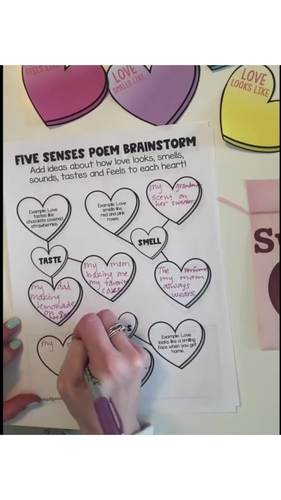 FEELS LIKE
LOVE
SMELLS LIKE
LOVE
LOOKS LIKE
FIVE SENSES POEM BRAINSTORM
Add ideas about how love looks, smells,
sounds, tastes and feels to each heart!
Example: Love
tastes like
chocolate covered
strawberries.
Example: Love
smells like
red and pink
roses.
my grandma's
scent on
her sweater
SMELL
TASTE
my mom
baking me
my favorite
The perfume
my mom
always
wears
my dad
making
lemonade
my
Example: Love
looks like a smiling
face when you get
home.